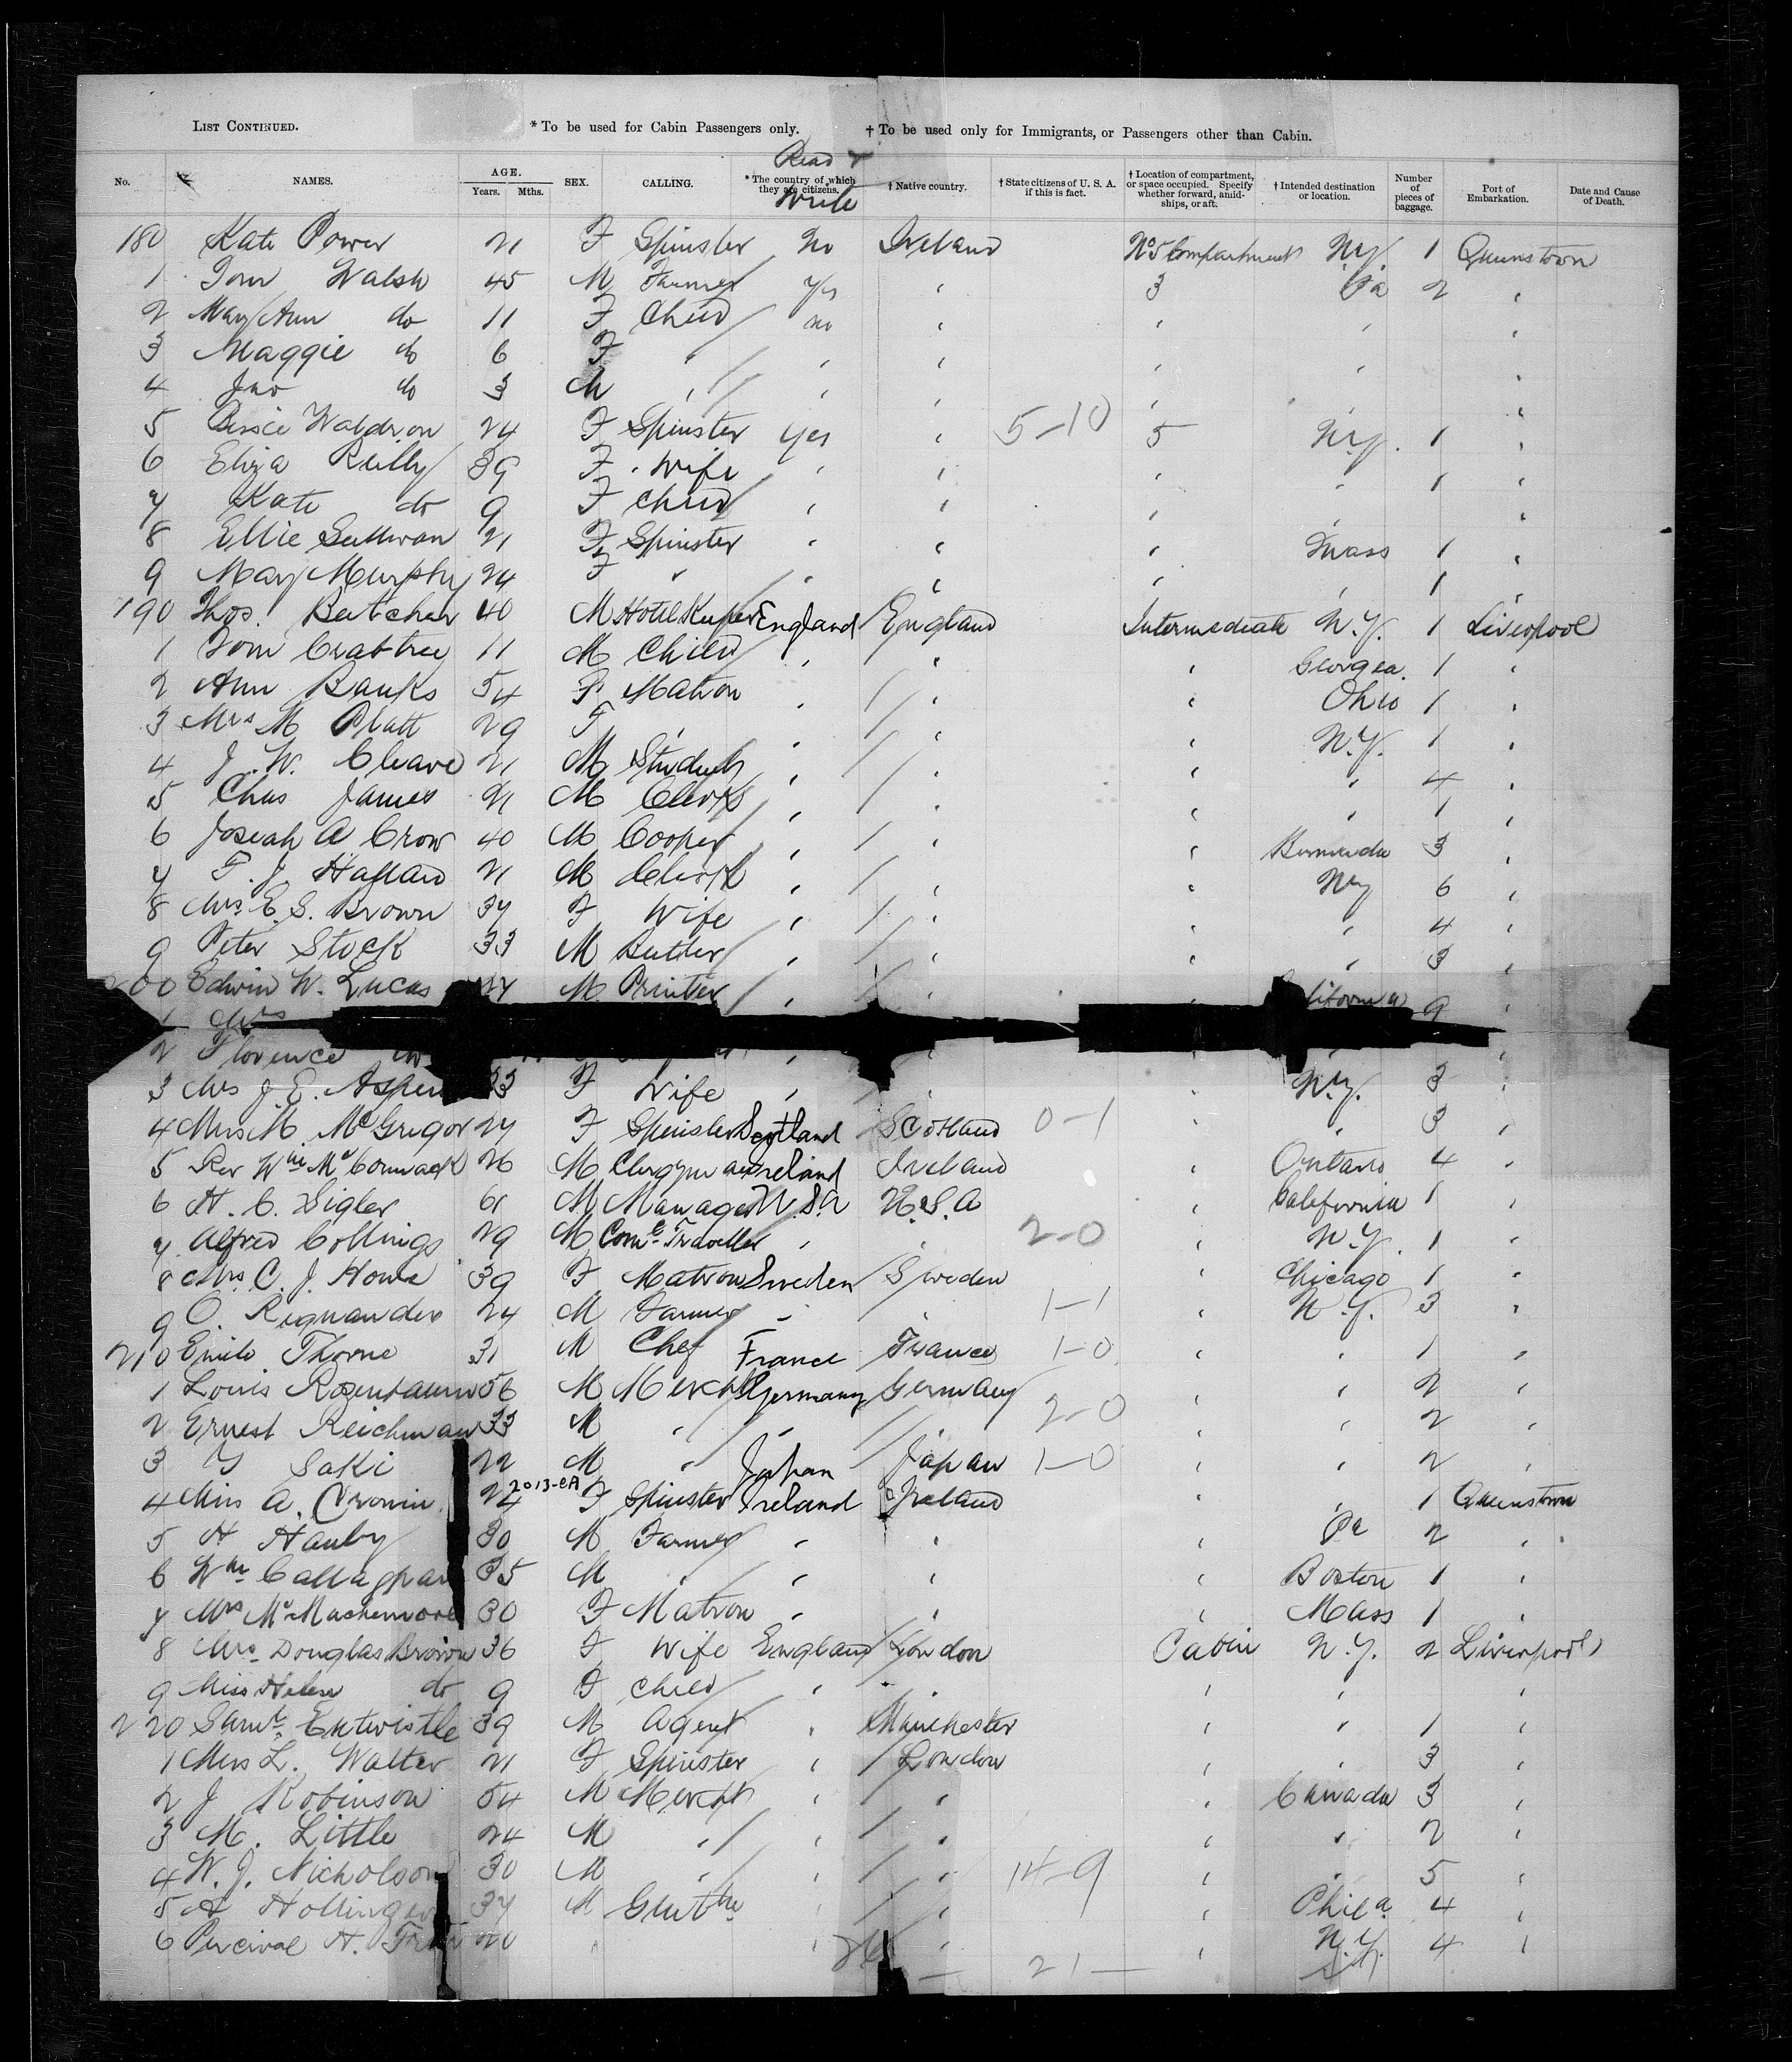 LIST CONTINUED. * To be used for Cabin Passengers only. † To be used only for Immigrants, or Passengers other than Cabin.
Read &
No. NAMES. AGE. Years. Mths. SEX. CALLING. * The country of which they are citizens. † Native country. † State citizens of U. S. A. if this is fact. † Location of compartment, or space occupied. Specify whether forward, amidships, or aft. † Intended destination or location. Number of pieces of baggage. Port of Embarkation. Date and Cause of Death.
Write
180 Kate Power 21 F Spinster No Ireland No 5 Compartment NY 1 Queenstown
1 Tom Walsh 45 M Farmer Yes " 3 Pa 2 "
2 Mary Ann do 11 F Child no " " " "
3 Maggie do 6 F " " " " " "
4 Jno do 3 M " " " " " "
5 Waldron 24 F Spinster Yes " 5-10 5 N.Y. 1 "
6 Eliza Reilly 39 F Wife " " " " 1 "
7 Kate do 9 F Child " " " " "
8 Ellie Sullivan 21 F Spinster " " " Mass 1 "
9 Mary Murphy 24 F " " " " " 1 "
190 Thos. Butcher 40 M Hotel Keeper England England Intermediate N.Y. 1 Liverpool
1 Tom Crabtree 11 M Child " " " Georgea. 1 "
2 Ann Banks 54 F Matron " " " Ohio 1 "
3 Mrs M Platt 29 F " " " " N.Y. 1 "
4 J. W. Cleave 21 M Student " " " " 4 "
5 Chas James 21 M Clerk " " " " 1 "
6 Josiah A Crow 40 M Cooper " " " Bermuda 3 "
7 F. J. 21 M Clerk " " " NY 6 "
8 Mrs E. S. Brown 37 F Wife " " " " 4 "
9 Peter Stock 33 M Butler " " " " 3 "
200 Edwin W. Lucas M Printer " " " 9 "
1 Mrs
2 Florence
3 Mrs J. E. 33 F Wife " " " N.Y. 3 "
4 Miss M. McGregor 27 F Spinster Scotland Scotland 0-1 " " 3 "
5 Rev Wm McCormack 26 M Clergyman Ireland Ireland " Ontario 4 "
6 H. C. Sigler 61 M Manager U.S.A U.S.A " California 1 "
7 Alfred Collings 29 M Coml Traveller " " 2-0 " N.Y. 1 "
8 Mrs. C. J. Howe 39 F Matron Sweden Sweden " Chicago 1 "
9 O. Regnander 24 M Farmer " " 1-1 " N.Y. 3 "
210 Emile Thorne 31 M Chef France France 1-0 " " 1 "
1 Louis Rosenbaum 56 M Mercht Germany Germany " " 2 "
2 Ernest Reichman 33 M " " " 2-0 " " 2 "
3 Y Saki 22 M " Japan Japan 1-0 " " 2 "
2013-CA
4 Miss A. Cronin 24 F Spinster Ireland Ireland " " 1 Queenstown
5 H Hanby 30 M Farmer " " Pa 2 "
6 Wm Callaghan 35 M " " " " Boston 1 "
7 Mrs 30 F Matron " " " Mass 1 "
8 Mrs Douglas Brown 36 F Wife England London Cabin N.Y. 2 Liverpool
9 Miss Helen do 9 F Child " " " " "
220 Saml. Entwistle 39 M Agent " Manchester " " 1 "
1 Miss L. Walter 21 F Spinster " London " " 3 "
2 J Robinson 54 M Mercht " " " Canada 3 "
3 M. Little 24 M " " " " " 2 "
4 W. J. Nicholson 30 M " " " 14-9 " " 5 "
5 A Hollinger 37 M Gentln " " " Phila 4 "
6 Percival H. 20 " " " " N.Y. 4 "
21